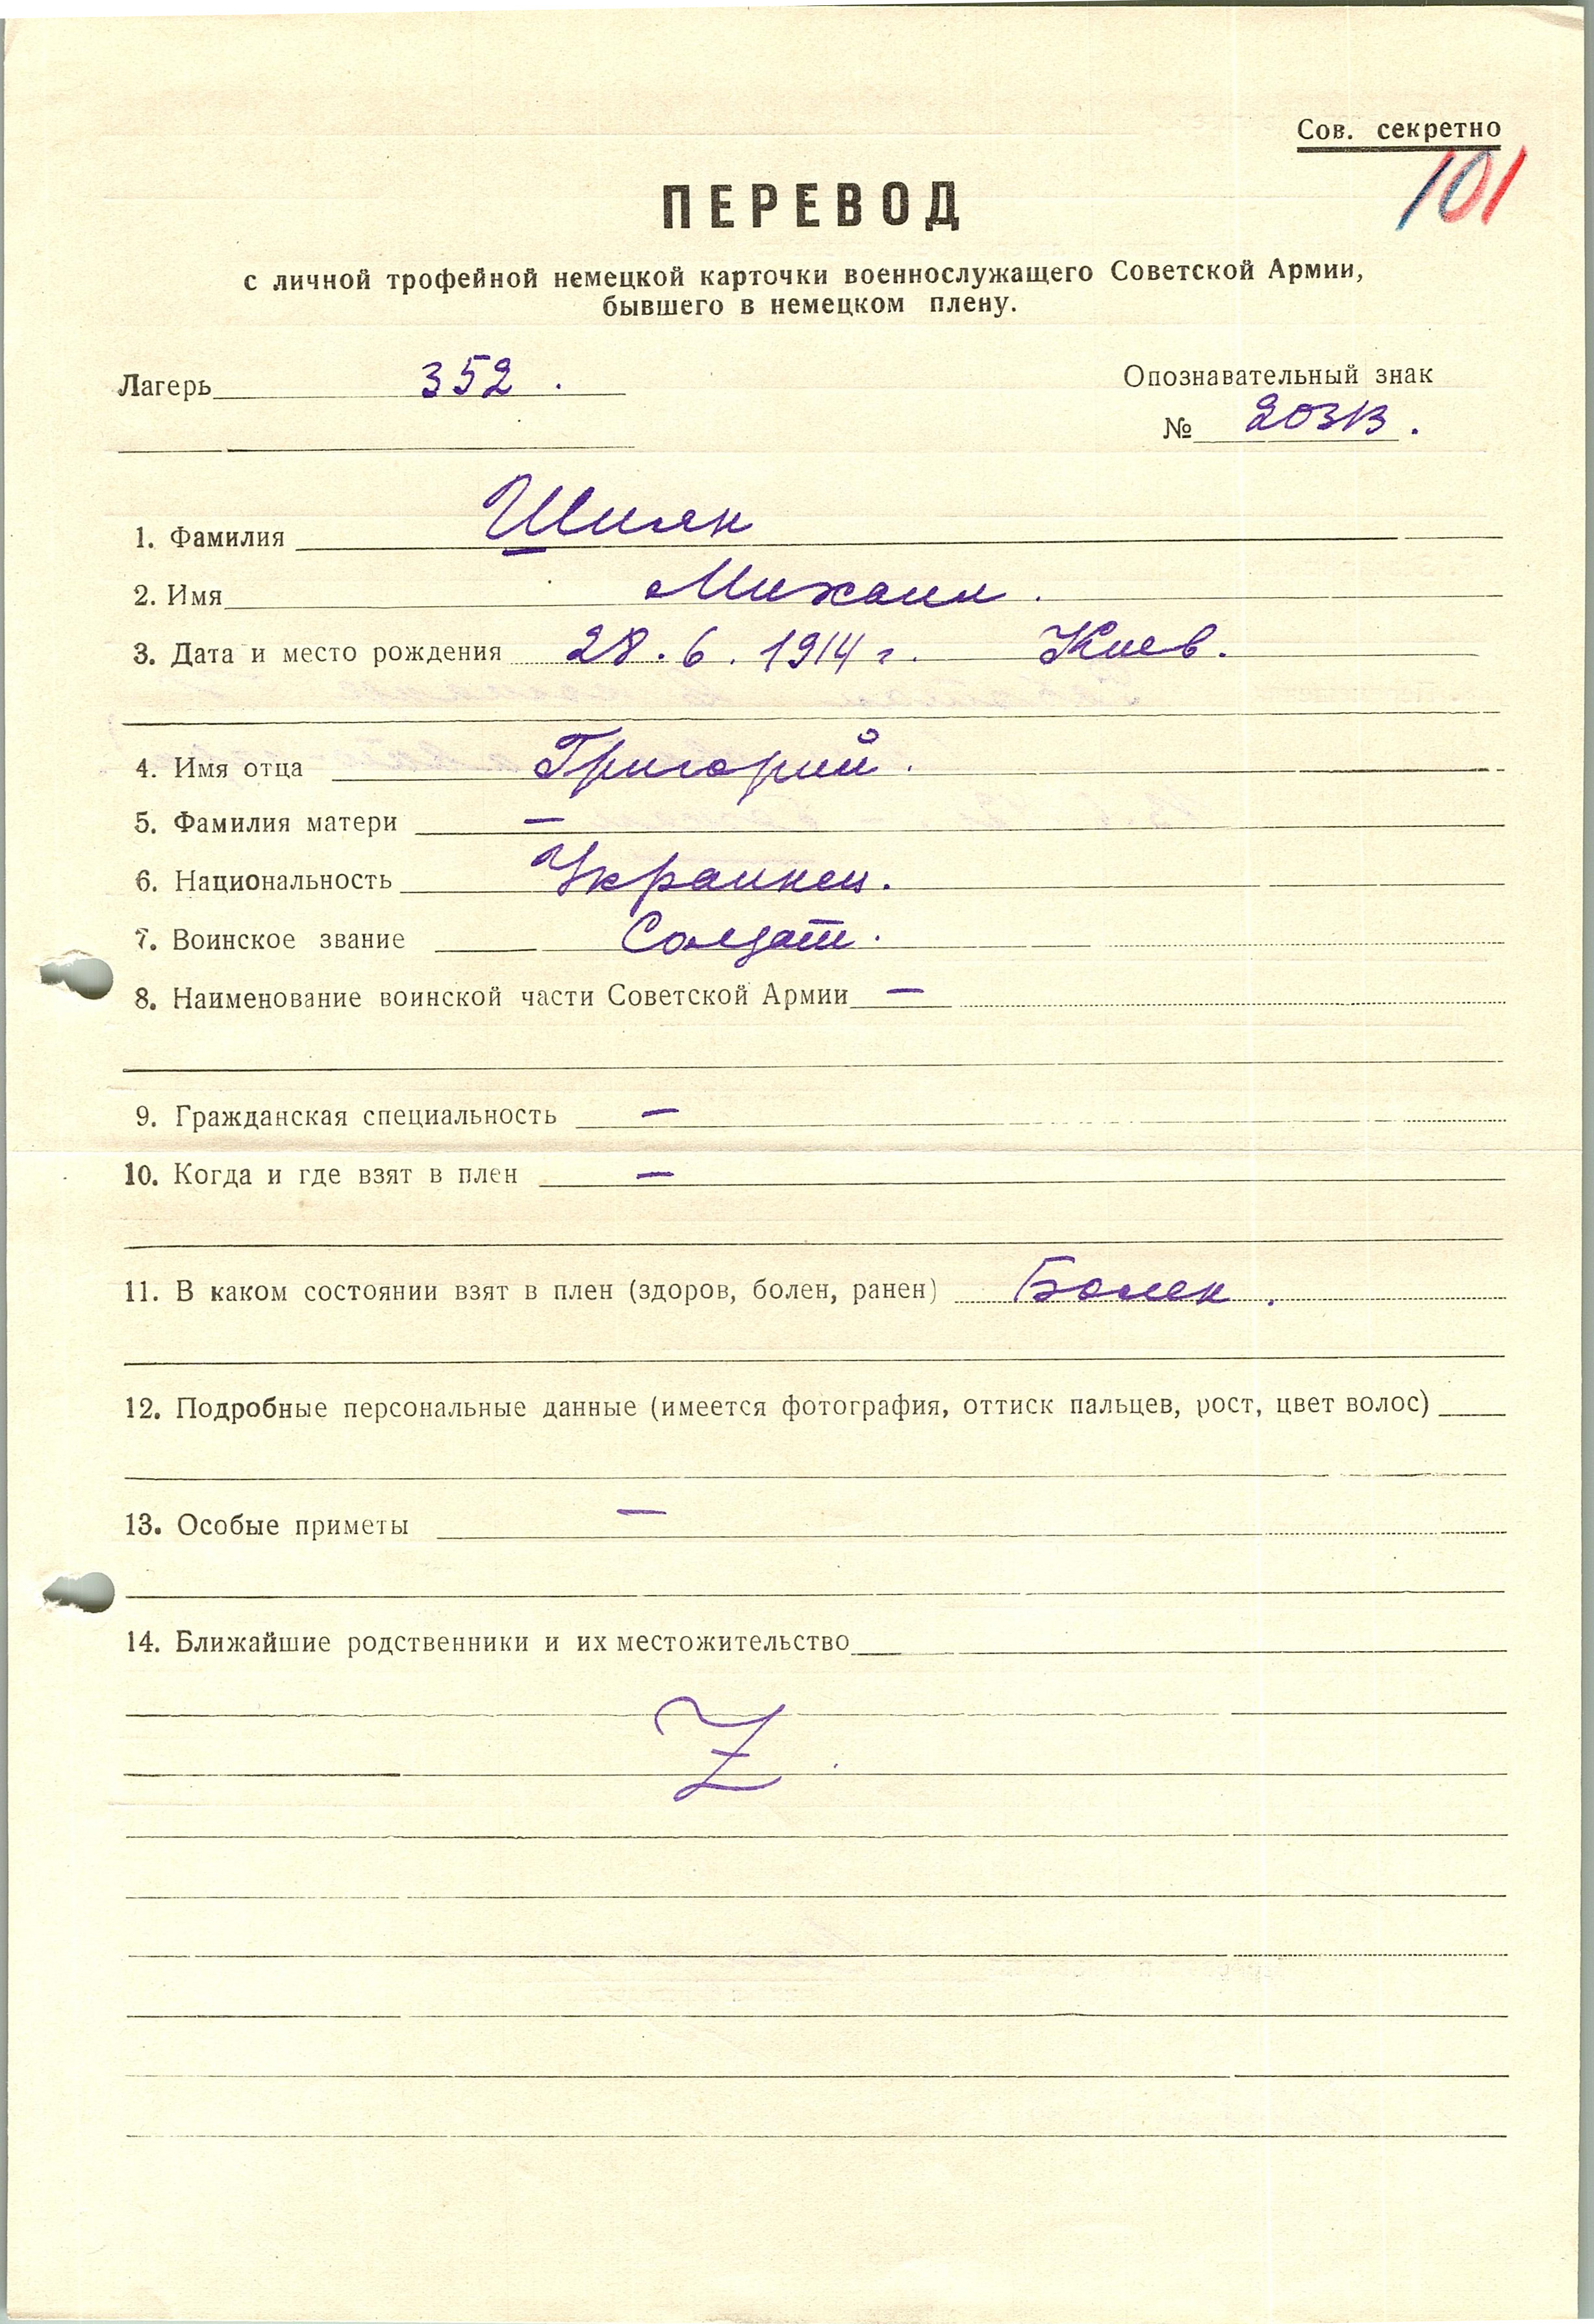 Сов. секретно
101
ПЕРЕВОД
с личной трофейной немецкой карточки военнослужащего Советской Армии,
бывшего в немецком плену.
Лагерь 352.
Опознавательный знак
№ 20313.
1. Фамилия Шиян
2. Имя Михаил.
3. Дата и место рождения 28.6.1914 г. Киев.
4. Имя отца Григорий.
5. Фамилия матери —
6. Национальность Украинец.
7. Воинское звание Солдат.
8. Наименование воинской части Советской Армии —
9. Гражданская специальность —
10. Когда и где взят в плен —
11. В каком состоянии взят в плен (здоров, болен, ранен) Болен.
12. Подробные персональные данные (имеется фотография, оттиск пальцев, рост, цвет волос)
13. Особые приметы —
14. Ближайшие родственники и их местожительство
Z